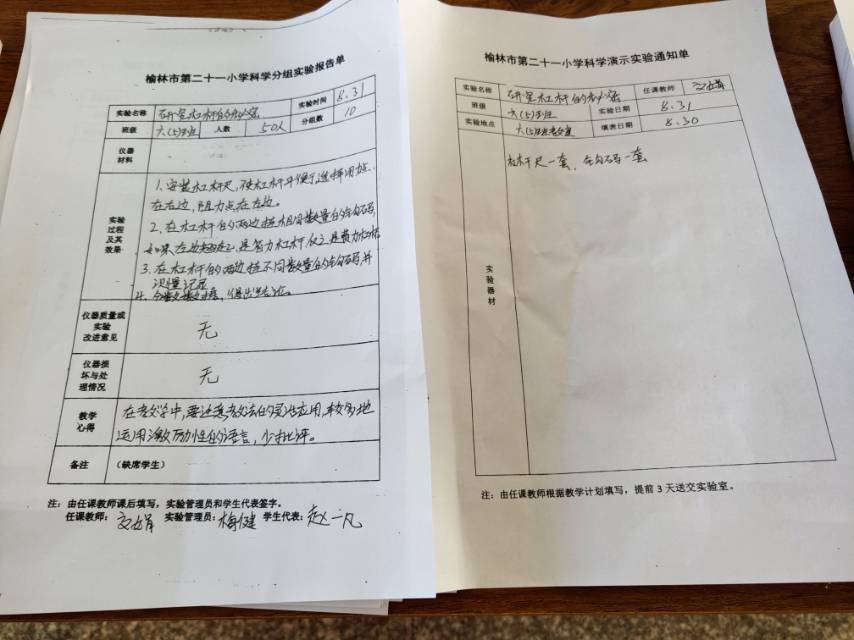 榆林市第二十一小学科学分组实验报告单
实验名称 研究杠杆的秘密 实验时间 8.31
班级 六(5)班 人数 50人 分组数 10
仪器材料
实验过程及其效果
1. 安装杠杆尺,使杠杆平衡,选择用力点
在右边,阻力点在左边。
2. 在杠杆的两边挂相同数量的钩码,
是省力杠杆,反之是费力杠杆
3. 在杠杆的两边挂不同数量的钩码,并
次进记录
4.
仪器质量或实验改进意见 无
仪器损坏与处理情况 无
教学心得
在教学中,要注意教法的灵活应用,较多地
运用激励性的语言,少批评。
备注 (缺席学生)
注:由任课教师课后填写,实验管理员和学生代表签字。
任课教师: 实验管理员: 梅健 学生代表: 赵一凡
榆林市第二十一小学科学演示实验通知单
实验名称 研究杠杆的秘密 任课教师
班级 六(5)班 实验日期 8.31
实验地点 六(5)班教室 填表日期 8.30
实验器材
杠杆尺一套,钩码一套
注:由任课教师根据教学计划填写,提前 3 天送交实验室。